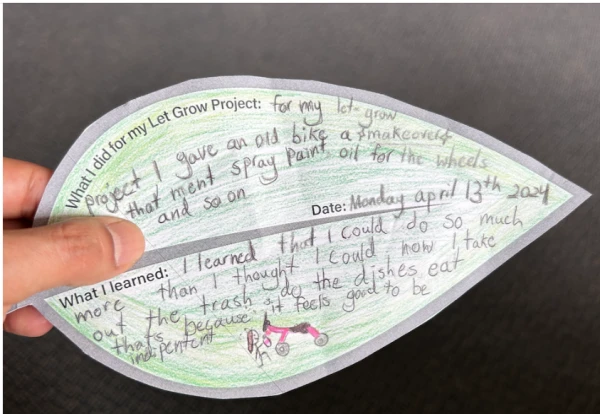 What I did for my Let Grow Project: for my let-grow
project I gave an old bike a *makeover*
that ment spray paint, oil for the wheels
and so on
Date: Monday april 13th 2024
What I learned: I learned that I could do so much
more than I thought I could now I take
out the trash do the dishes eat
that's because it feels good to be
indipentent